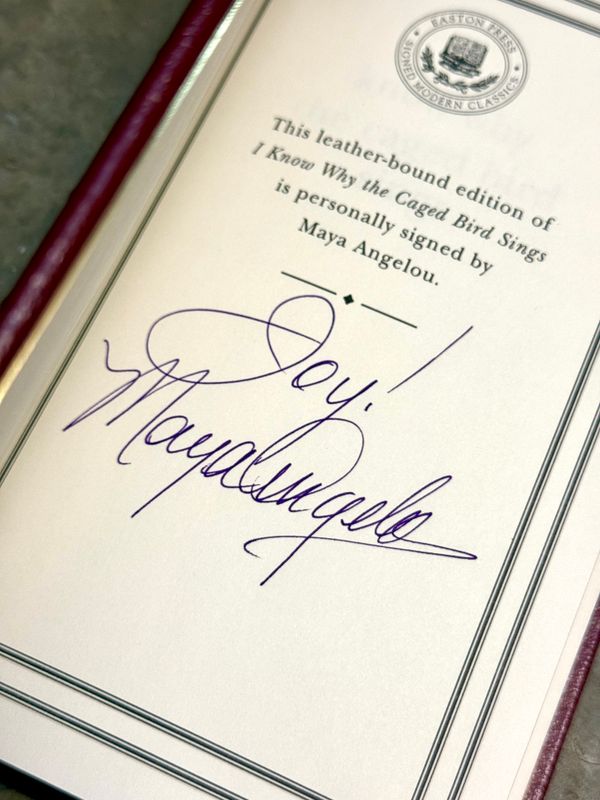 EASTON PRESS
SIGNED MODERN CLASSICS
This leather-bound edition of
I Know Why the Caged Bird Sings
is personally signed by
Maya Angelou.
Joy!
Maya Angelou